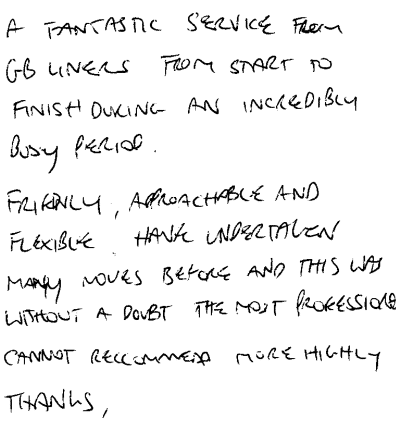 A FANTASTIC SERVICE FROM
GB LINERS FROM START TO
FINISH DURING AN INCREDIBLY
BUSY PERIOD.
FRIENLY, APPROACHABLE AND
FLEXIBLE. HAVE UNDERTAKEN
MANY MOVES BEFORE AND THIS WAS
WITHOUT A DOUBT THE MOST PROFESSIONAL
CANNOT RECCOMMEND MORE HIGHLY
THANKS,